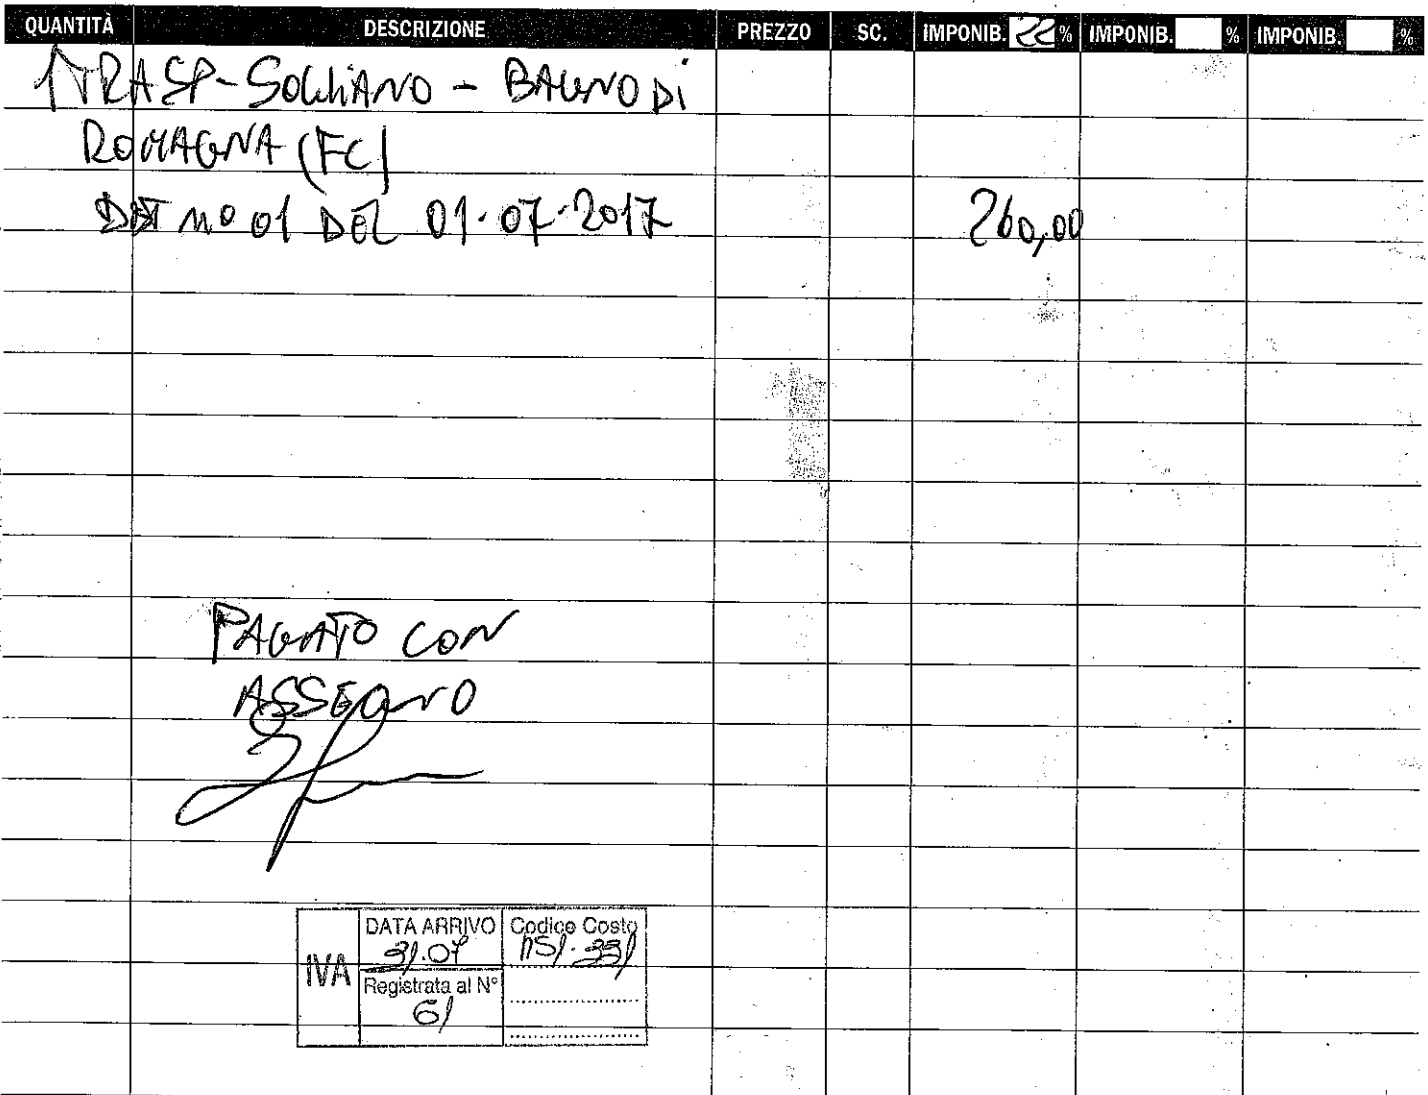 QUANTITÀ DESCRIZIONE PREZZO SC. IMPONIB. 22 % IMPONIB. % IMPONIB. %
TRASP-SOGLIANO - BAGNO DI
ROMAGNA (FC)
DDT N° 01 DEL 01.07.2017 260,00
PAGATO CON
ASSEGNO
IVA DATA ARRIVO Codice Costo
31.07
Registrata al N°
61